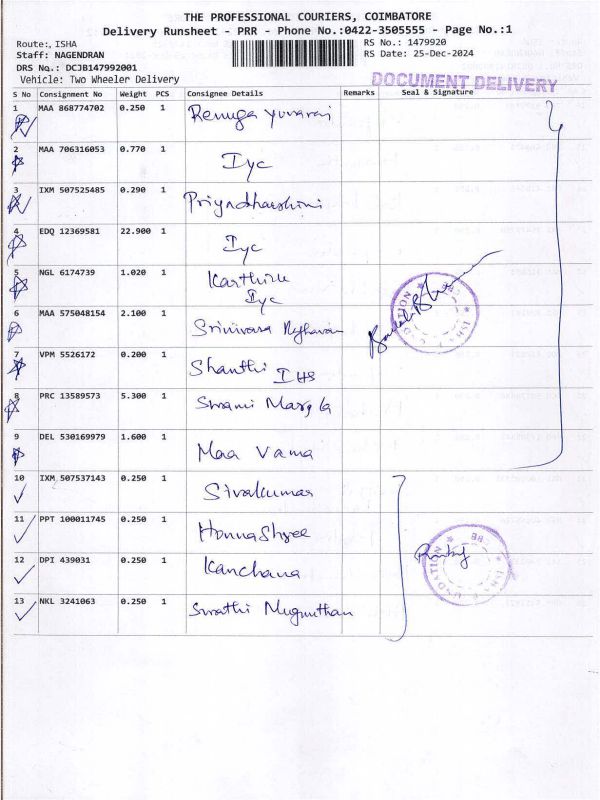 THE PROFESSIONAL COURIERS, COIMBATORE
Delivery Runsheet - PRR - Phone No.:0422-3505555 - Page No.:1
Route:, ISHA
RS No.: 1479920
Staff: NAGENDRAN
RS Date: 25-Dec-2024
DRS No.: DCJB147992001
Vehicle: Two Wheeler Delivery
DOCUMENT DELIVERY
S No Consignment No Weight PCS Consignee Details Remarks Seal & Signature
1 MAA 868774702 0.250 1 Renuga Yuvaraj
2 MAA 706316053 0.770 1 Iyc
3 IXM 507525485 0.290 1 Priyadharshini
4 EDQ 12369581 22.900 1 Iyc
5 NGL 6174739 1.020 1 Karthik
Iyc
6 MAA 575048154 2.100 1 Srinivasa
7 VPM 5526172 0.200 1 Shanthi IHS
8 PRC 13589573 5.300 1 Swami
9 DEL 530169979 1.600 1 Maa Vama
10 IXM 507537143 0.250 1 Sivakumar
11 PPT 100011745 0.250 1 HonnaShree
12 DPI 439031 0.250 1 Kanchana
13 NKL 3241063 0.250 1 Swathi Mugunthan